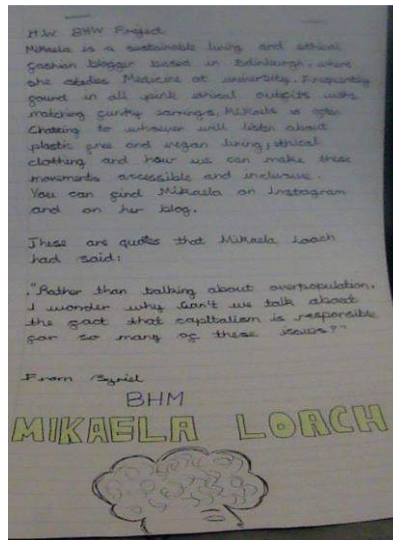 H.W. BHW Project
Mikaela is a sustainable living and ethical
fashion blogger based in Edinburgh, where
she studies Medicine at university. Frequently
found in all pink ethical outfits with
matching funky earrings, Mikaela is often
Chatting to whoever will listen about
plastic free and vegan living, ethical
clothing and how we can make these
movements accessible and inclusive.
You can find Mikaela on Instagram
and on her blog.
These are quotes that Mikaela Loach
had said:
."Rather than talking about overpopulation,
I wonder why can't we talk about
the fact that capitalism is responsible
for so many of these issues?"
From
BHM
MIKAELA LOACH